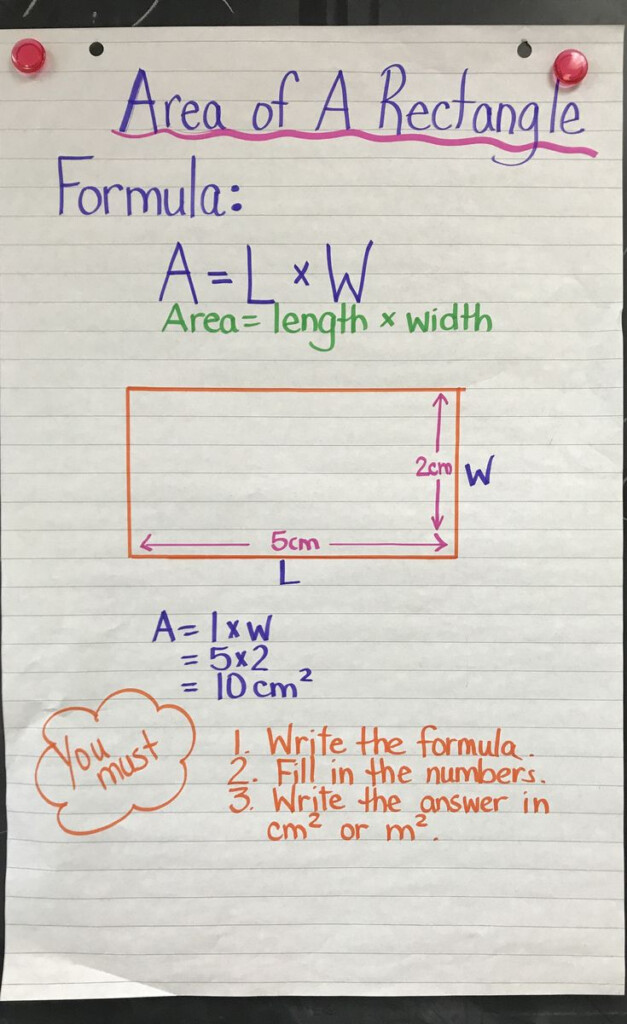 Area of A Rectangle
Formula:
A = L × W
Area = length × width
2cm W
5cm
L
A = l × w
= 5 × 2
= 10 cm²
You must
1. Write the formula.
2. Fill in the numbers.
3. Write the answer in
cm² or m².